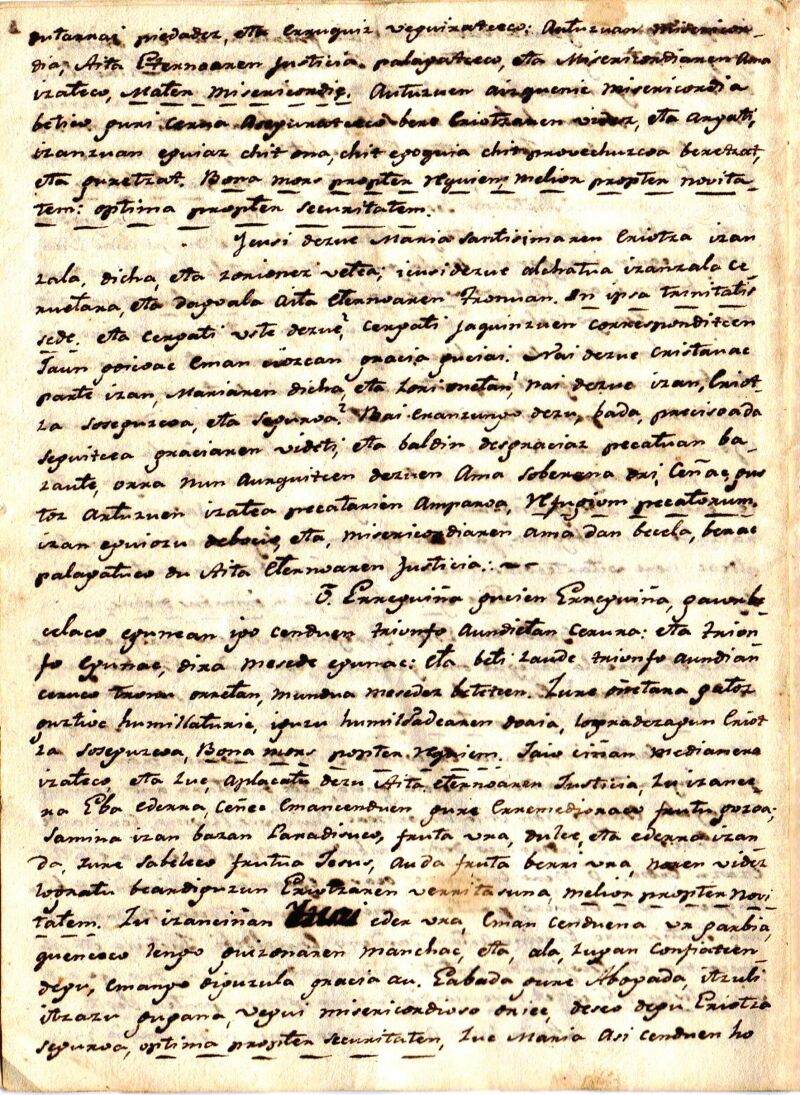 piedadez, eta erruquiz veguiratceco: Autuzuan Misericor-
dia, Aita Eternoaren Justicia palagatceco, eta Misericordiaren Ama
izateco, Mater Misericordię. Autuzuen aizquenic misericordia
betico guri cerua Aseguratceco bere Eriotzaren videz, eta argati,
izanzuan eguiaz chit ona, chit egoquia chit provechuzcoa beretzat,
eta guretzat. Bona mors propter Requiem, melior propter novita-
tem: optima propter securitatem.
Icusi dezue Maria Santisimaren Eriotza izan
zala, dicha, eta zorionez vetea; icusi dezue alchatua izanzala ce-
ruetara, eta dagoala Aita Eternoaren Tronuan. In ipsa trinitatis
sede. eta cergati uste dezue? cergati jaquinzuen corresponditcen
Jaun goicoac Eman ciozcan gracia guciai. Nai dezue cristauac
parte izan, Mariaren dicha, eta zorionetan? nai dezue izan, Eriot-
za soseguzcoa, eta segurva? Nai eranzungo dezu, bada, preciso da
seguitcea graciaren videti, eta baldin desgraciaz pecatuan ba-
zaute, orra nun Aurquitcen dezuen Ama soberana ori, Ceñac, gus
toz Artuzuen izatea pecatarien Amparoa, Refugium pecatorum.
izan eguiozu debocio, eta, misericordiaren ama dan becela, berac
palagatuco du Aita Eternoaren Justicia.
O. Erreguiña gucien Erreguiña, gaur be
celaco egunean igo cenduen triunfo aundietan cerura: eta trion-
fo egunac, dira mesede egunac: eta beti zaude triunfo aundian
ceruco tronu orretan, mundua mesedez betetcen. Zure oñetara gatoz
guztioc humillaturic, iguzu humildadearen doaia, logradezagun Eriot
za sosegurcoa, Bona mors propter Requiem. Jaio ciñan medianera
izateco, eta zuc, aplacatu dezu Aita eternoaren Justicia, zu izance-
ra Eba ederra, ceñec Emancenduen gure Erremedioraco frutu gozoa;
Samina izan bazan Paradisuco, fruta ura, dulce, eta ederra izan
da, zure sabeleco frutua Jesus, au da fruta berri ura, noren videz
logratu beardiguzun Eriotzaren verritasuna, melior propter novi
tatem. Zu izanciñan eder ura, Eman cenduena ur garbia,
quenceco lengo guizonaren manchac, eta, ala, zugan confiatcen-
degu, Emango diguzula gracia au. Eabada gure Abogada, itzuli
itzazu gugana, vegui misericordioso oriec, deseo degu Eriotza
segurva, optima propter securitatem, zuc Maria Asi cenduen ho